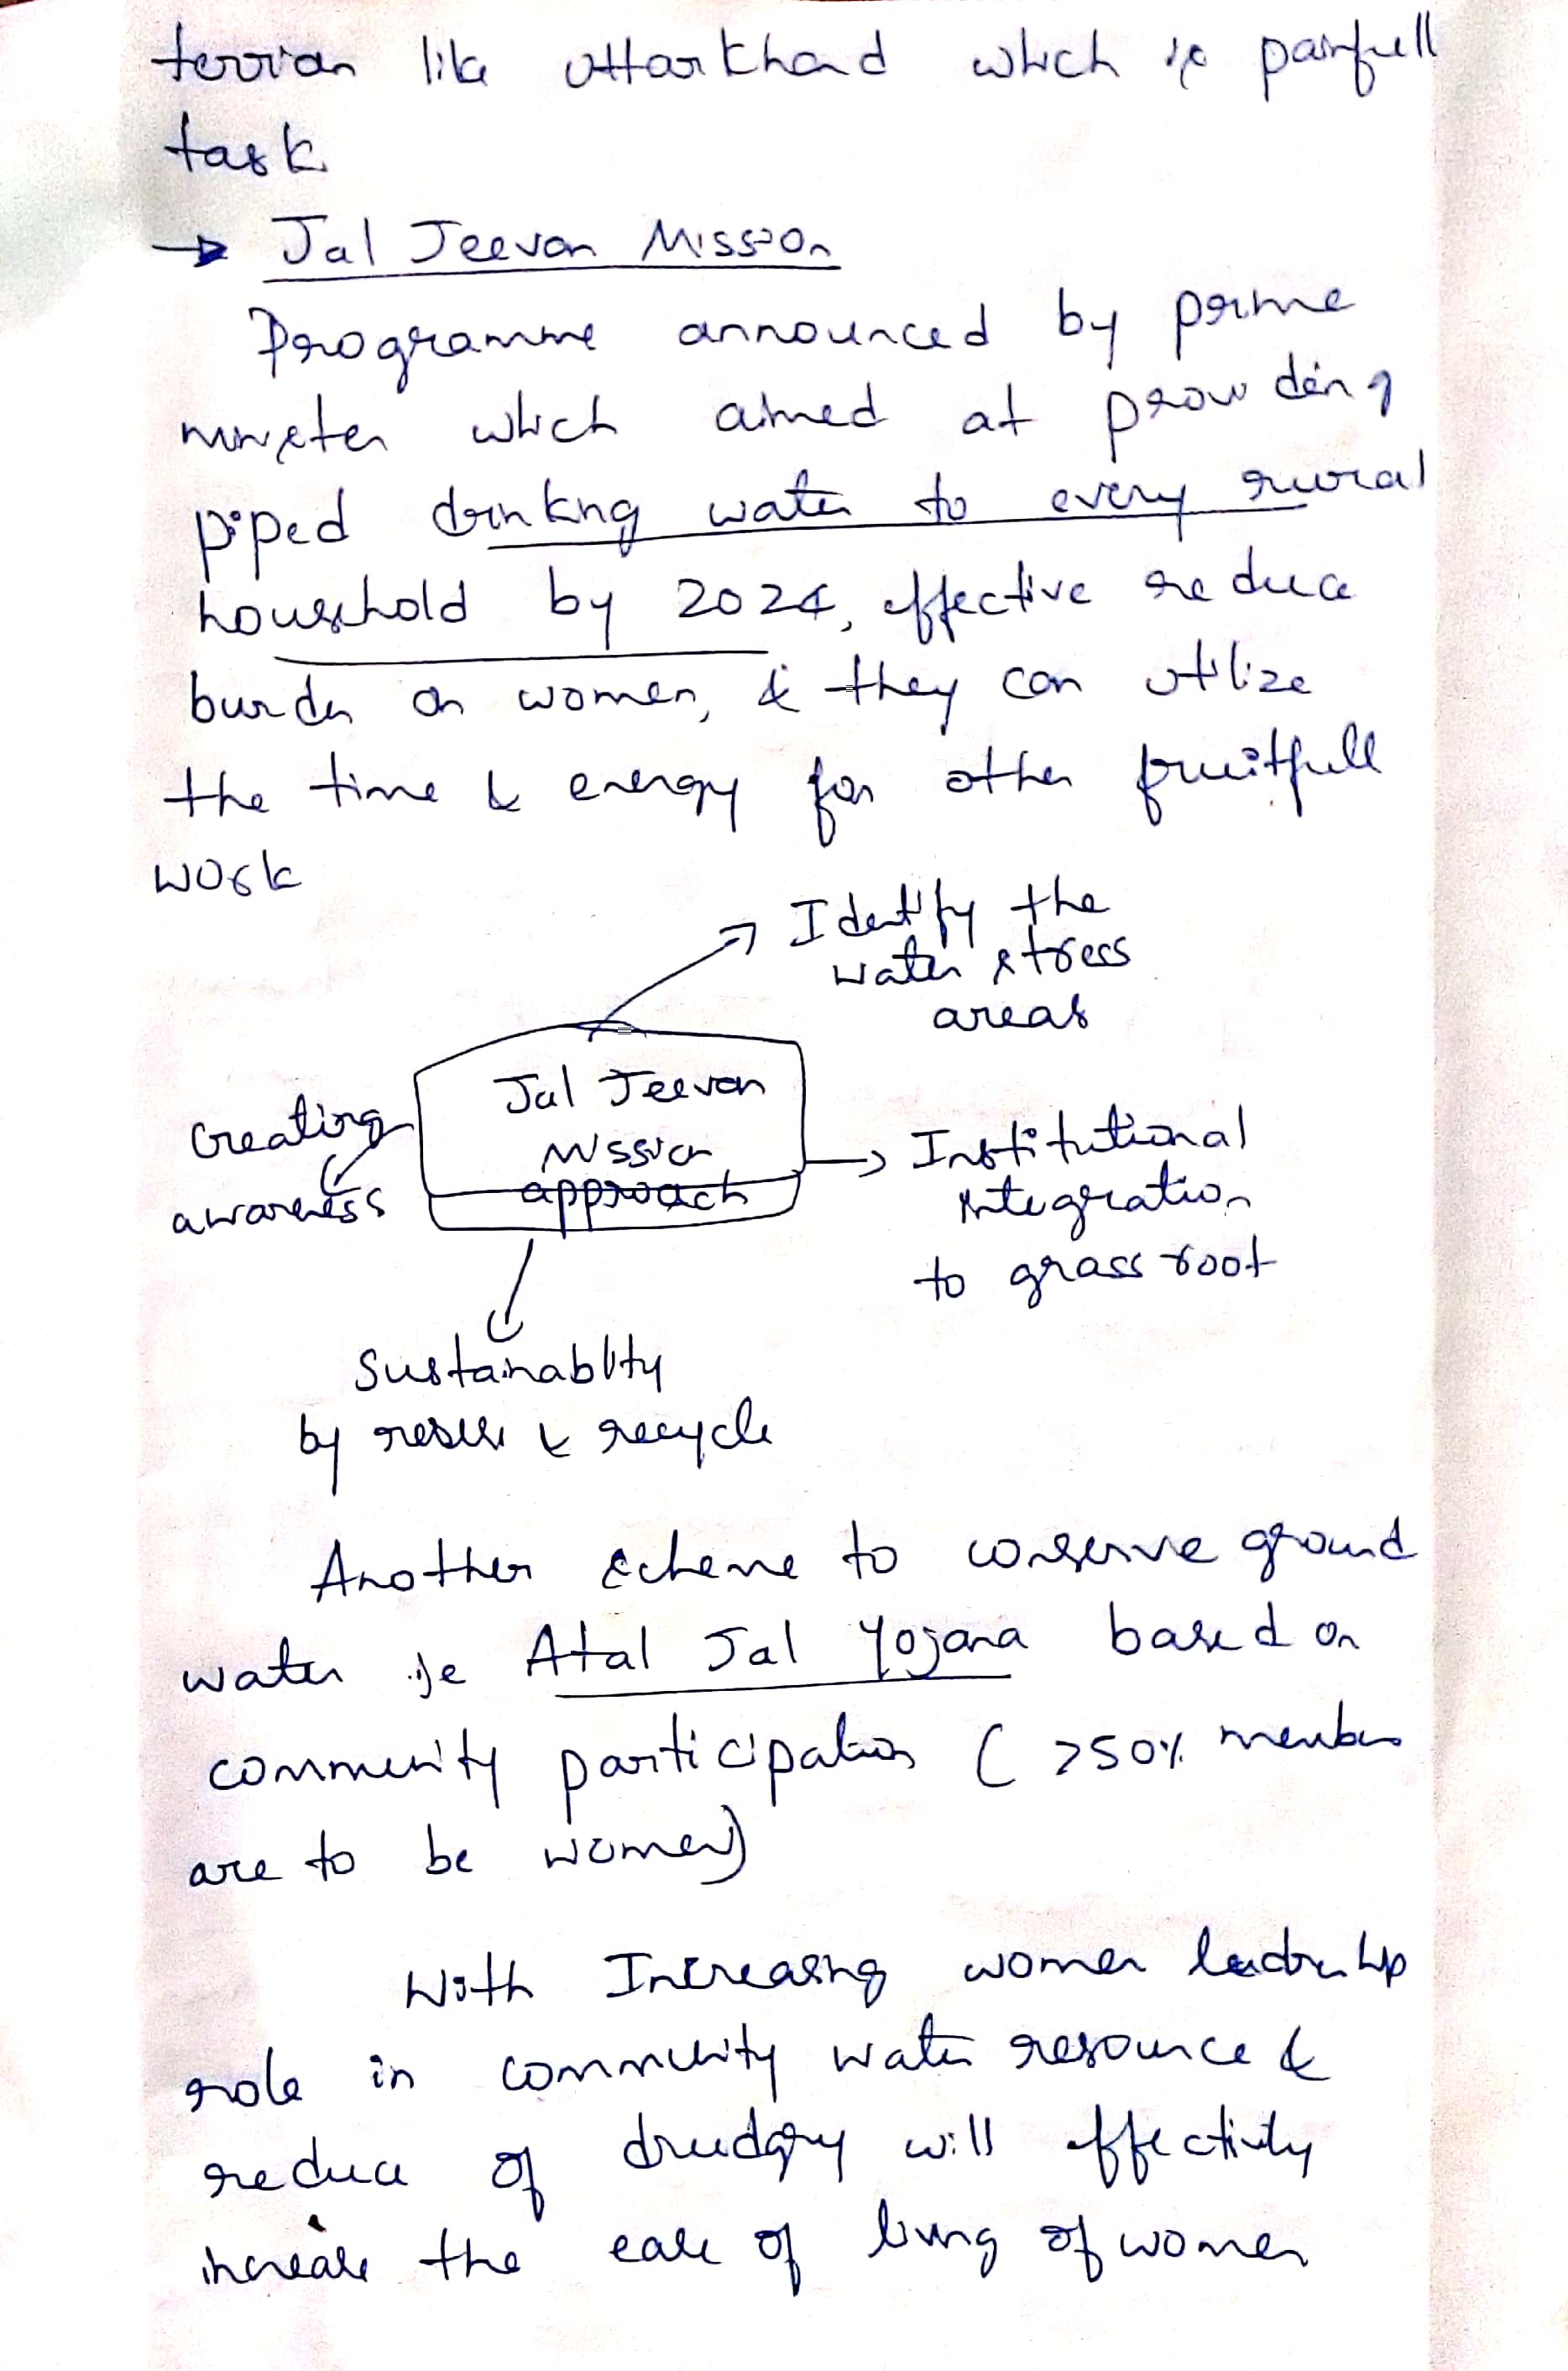 terrian like uttarkhand which is painfull
task
→ Jal Jeevan Mission
Programme announced by prime
minister which aimed at providing
piped drinking water to every rural
household by 2024, effective reduce
burden on women, & they can utilize
the time & energy for other fruitfull
work
Identify the
water stress
areas
Jal Jeevan
Mission
approach
creating
awareness
Institutional
integration
to grass root
Sustainability
by resuse & recycle
Another scheme to conserve ground
water ie Atal Jal Yojana based on
community participation ( >50% members
are to be women)
With Increasing women leadership
role in community water resource &
reduce of drudgery will effectively
increase the ease of living of women